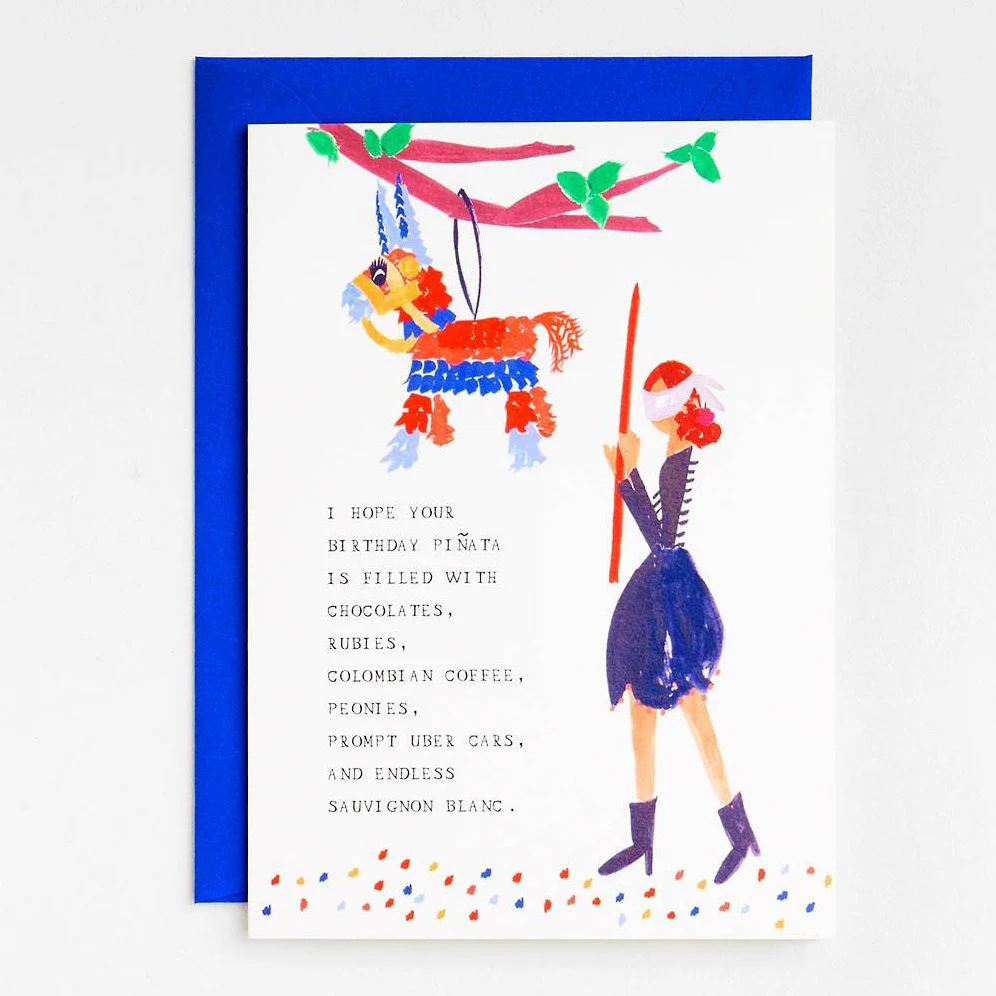 I HOPE YOUR
BIRTHDAY PIÑATA
IS FILLED WITH
CHOCOLATES,
RUBIES,
COLOMBIAN COFFEE,
PEONIES,
PROMPT UBER CARS,
AND ENDLESS
SAUVIGNON BLANC.